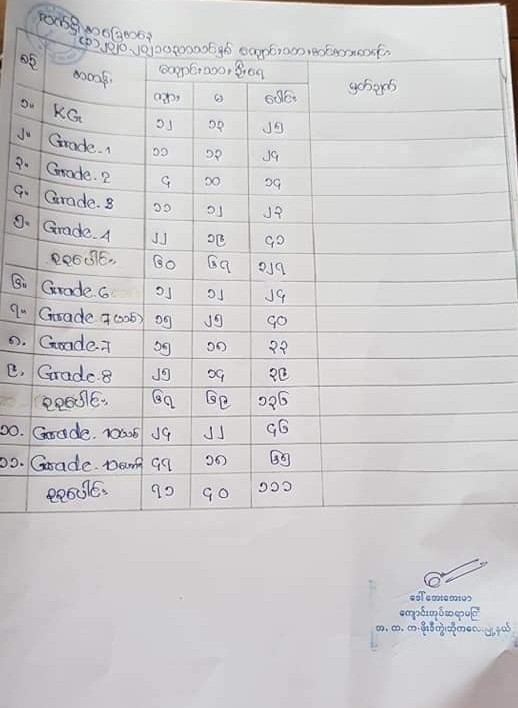 စဉ် အတန်း ကျောင်းသား ဦးရေ မှတ်ချက်
ကျား မ ပေါင်း
၁။ KG ၁၂ ၁၃ ၂၅
၂။ Grade-1 ၁၁ ၁၃ ၂၄
၃။ Grade-2 ၄ ၁၀ ၁၄
၄။ Grade-3 ၁၁ ၁၂ ၂၃
၅။ Grade-4 ၂၂ ၁၉ ၄၁
စုစုပေါင်း ၆၀ ၆၇ ၁၂၇
၆။ Grade-6 ၁၂ ၁၂ ၂၄
၇။ Grade-7(သစ်) ၁၅ ၂၅ ၄၀
၈။ Grade-7 ၁၅ ၁၈ ၃၃
၉။ Grade-8 ၂၅ ၁၄ ၃၉
စုစုပေါင်း ၆၇ ၆၉ ၁၃၆
၁၀. Grade-10သစ် ၂၄ ၂၂ ၄၆
၁၁. Grade-10ဟောင်း ၄၇ ၁၈ ၆၅
စုစုပေါင်း ၇၁ ၄၀ ၁၁၁
ဒေါ်အေးအေးမာ
ကျောင်းအုပ်ဆရာမကြီး